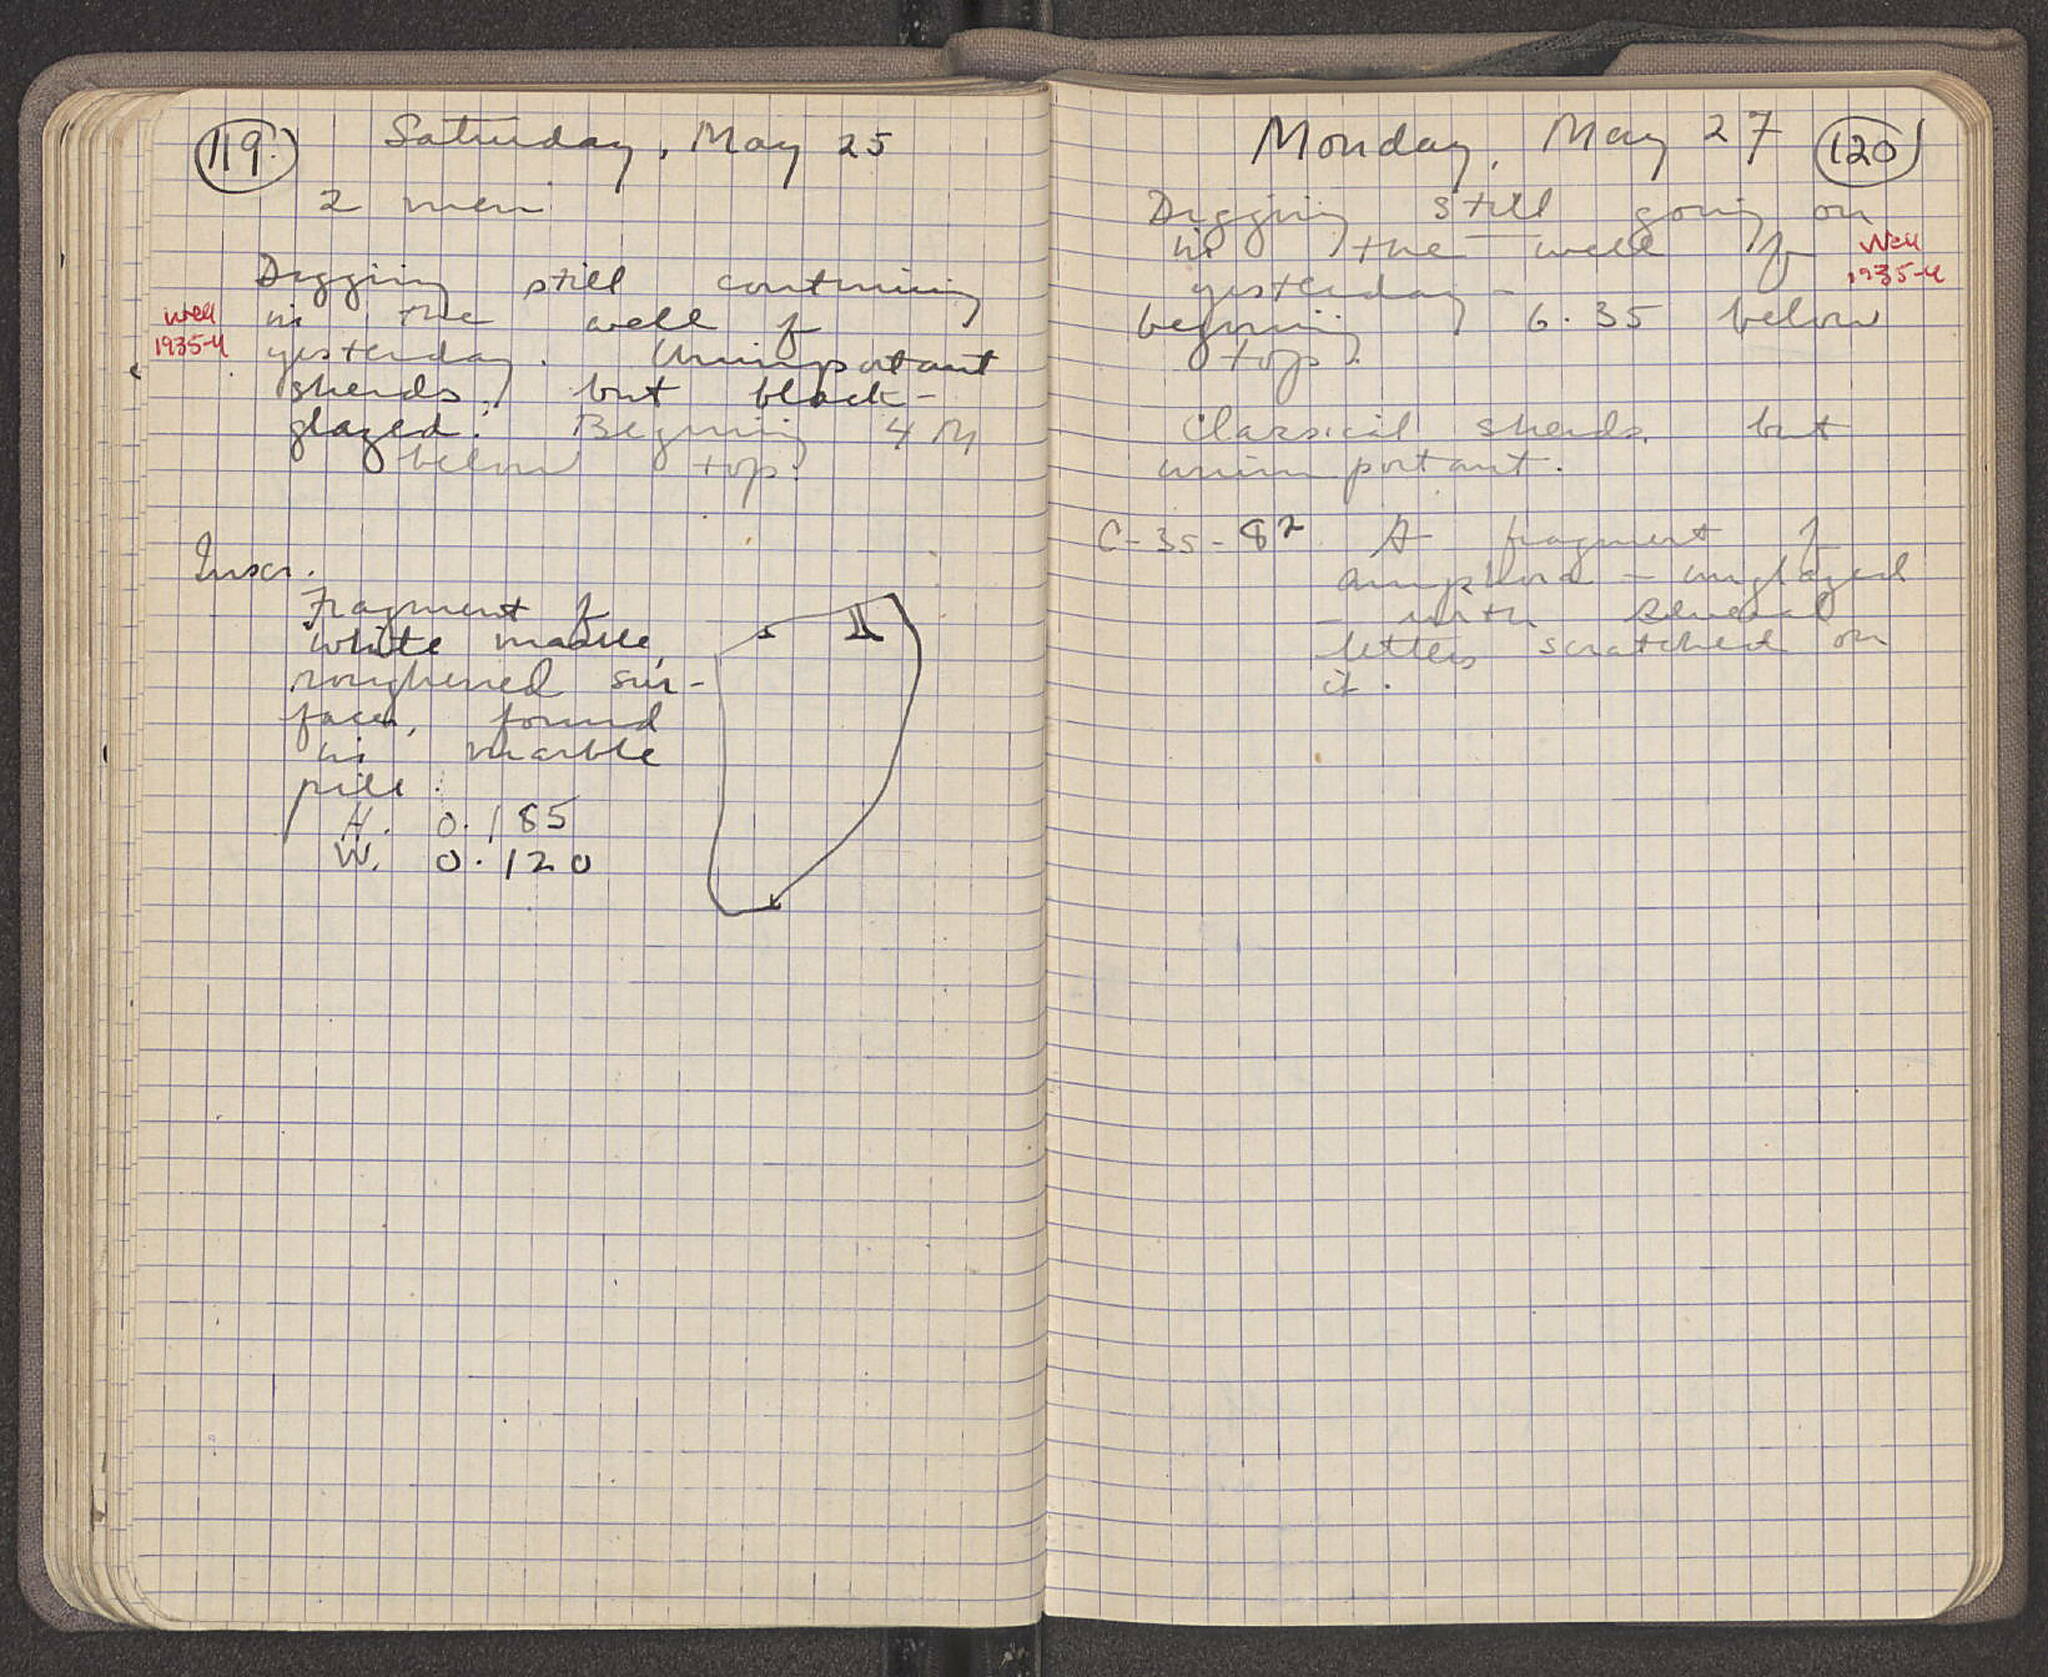 119.
Saturday, May 25
2 men
Digging still continuing
in the well of
yesterday. Unimportant
sherds, but black-
glazed. Begining 4 M
below top.
Well
1935-4
Inscr.
Fragment of
white marble,
roughened sur-
face, found
in marble
pile:
H. 0.185
W. 0.120
Monday, May 27
120
Digging still going on
in the well of
yesterday -
begining 6.35 below
top.
Well
1935-4
Classical sherds, but
unimportant.
C-35-82 A fragment of
amphora - unglazed
- with several
letters scratched on
it.